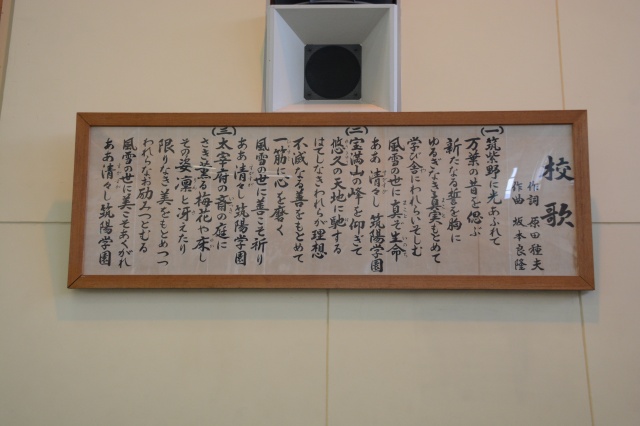 校歌
作詞 原田種夫
作曲 坂本良隆
(一)
筑紫野に光あふれて
万葉の昔を偲ぶ
新たなる誓を胸に
ゆるぎなき真実もとめて
学び舎にわれらいそしむ
風雪の世に真そ生命
ああ 清々し 筑陽学園
(二)
宝満山の峰を仰ぎて
悠久の天地に馳する
はてしなきわれらが理想
不滅なる善をもとめて
一筋に心を磨く
風雪の世に善こそ祈り
ああ清々し筑陽学園
(三)
太宰府の斎の庭に
さき薫る梅花や床し
その姿凛と冴えたり
限りなき美をもとめつつ
われらなお励みつとむる
風雪の世に美こそあくがれ
ああ清々し筑陽学園